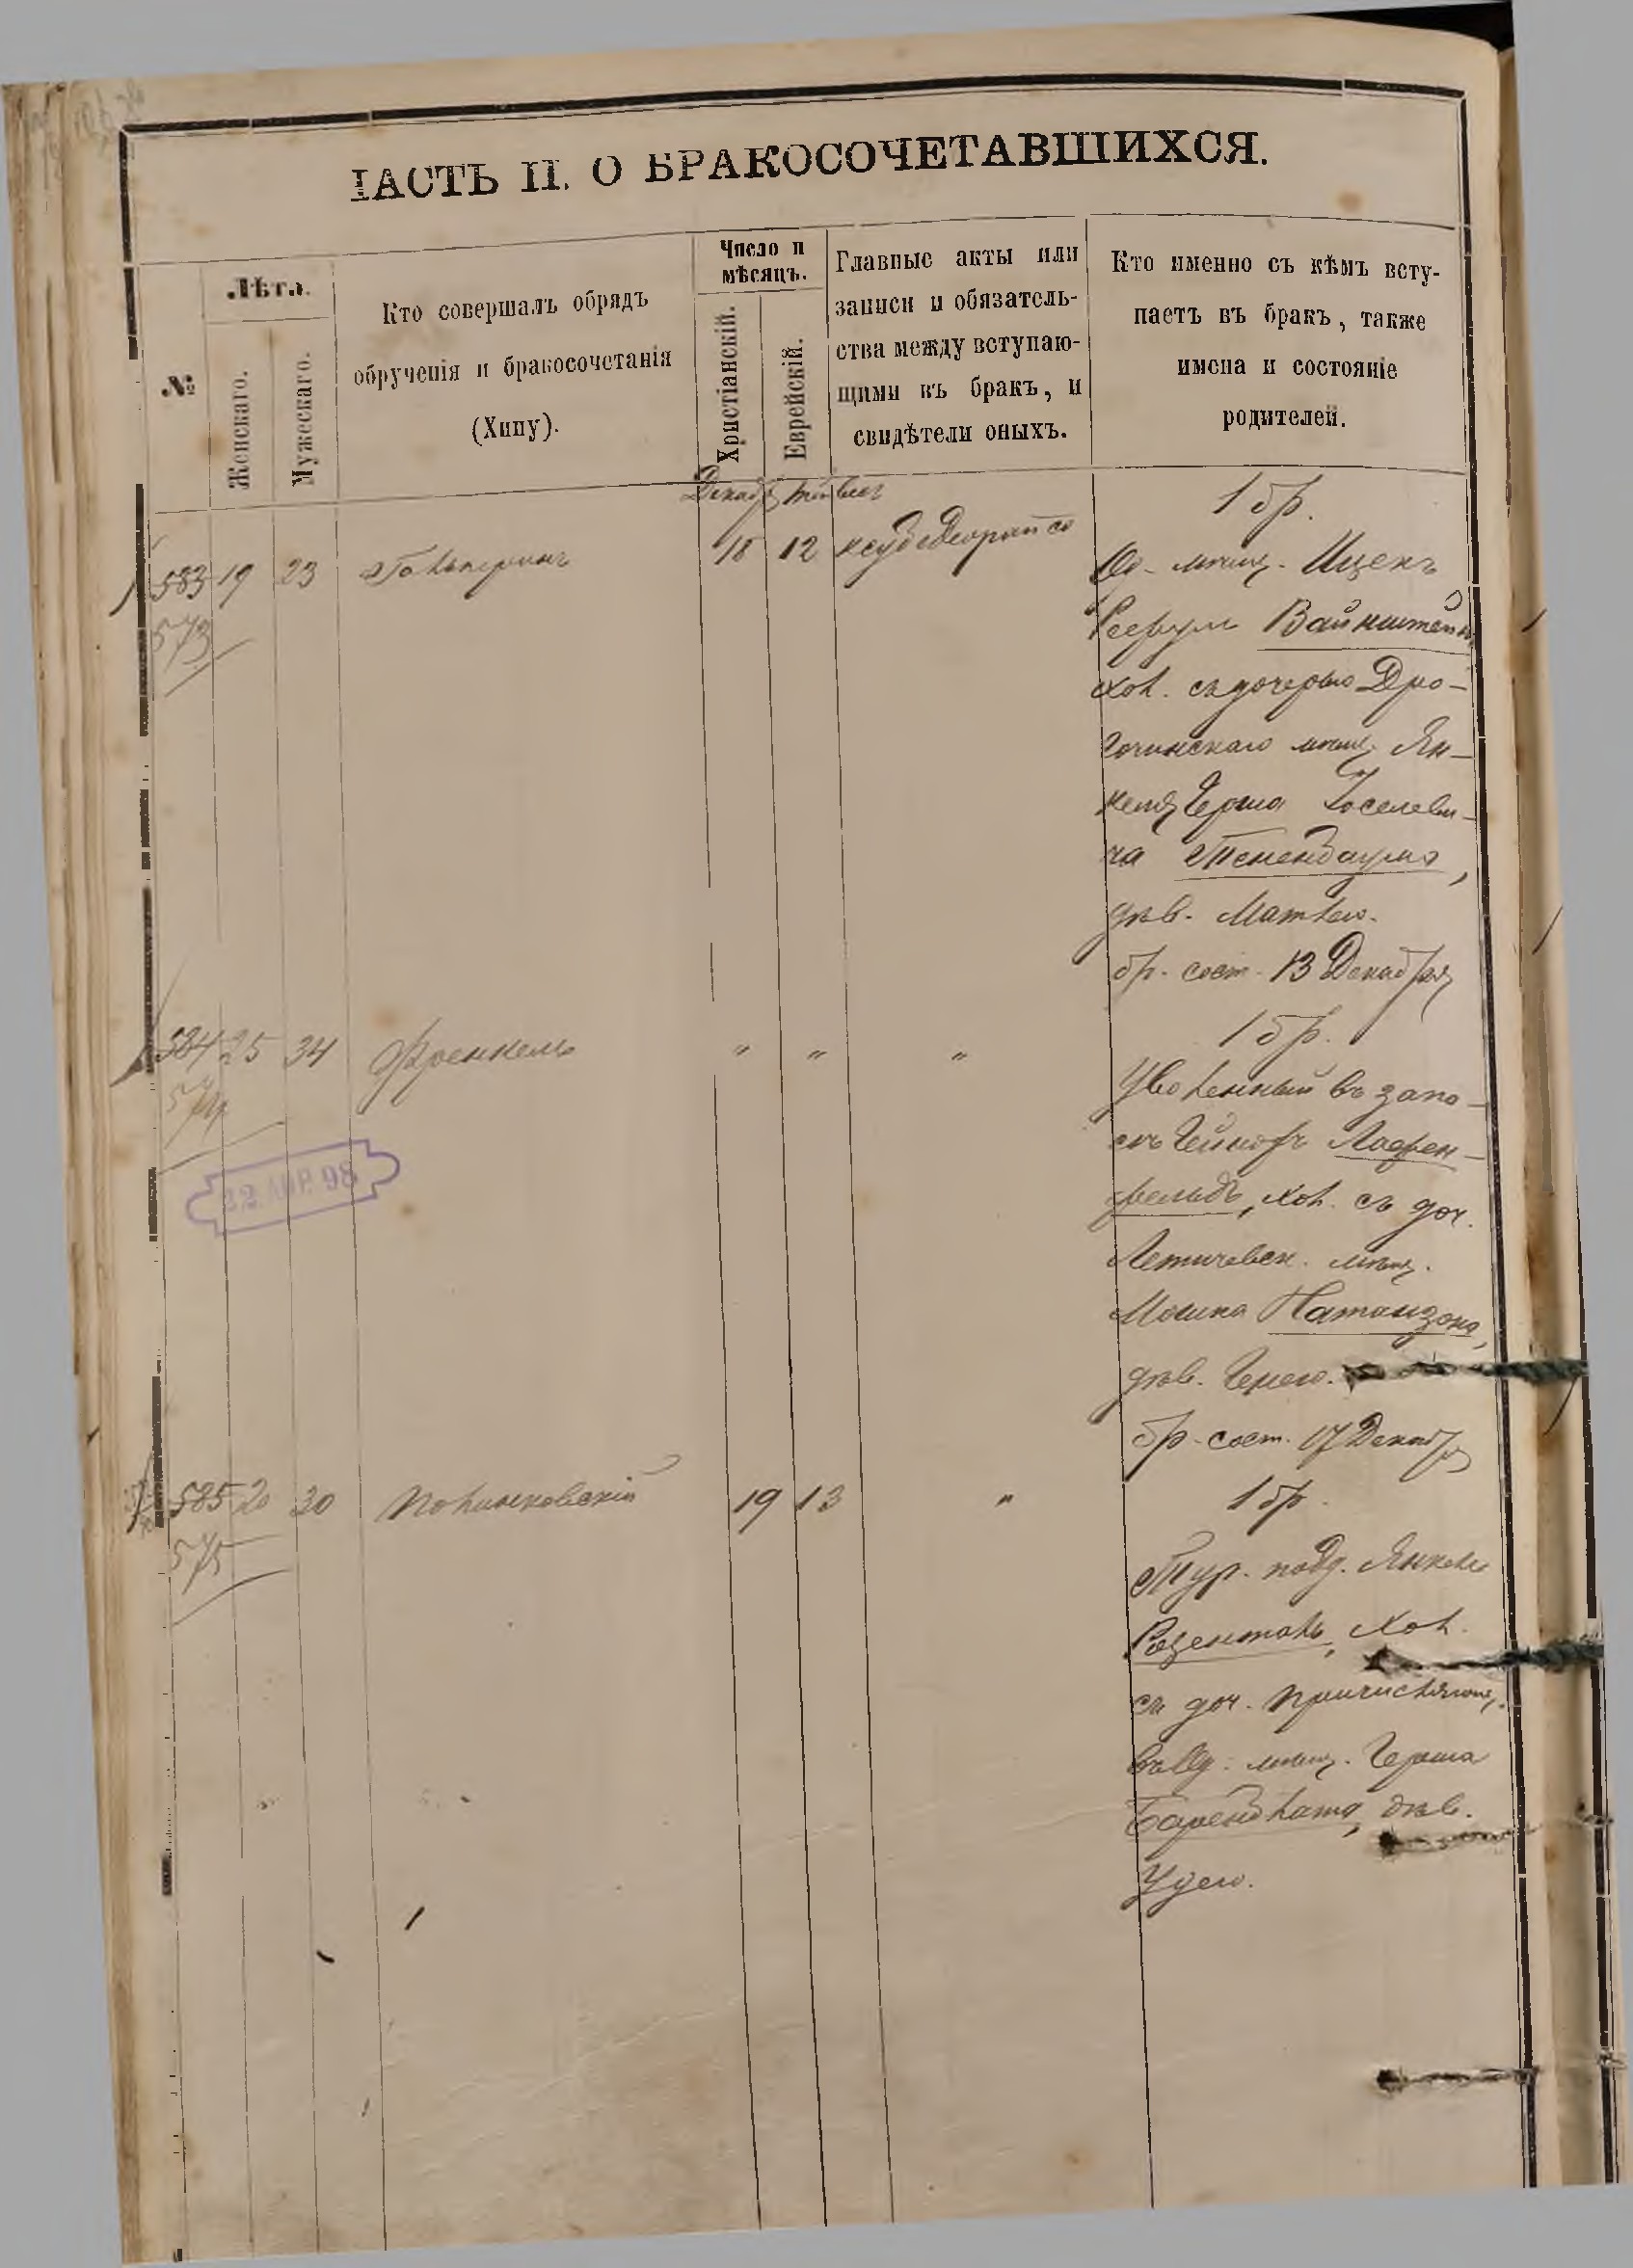 ЧАСТЬ II. О БРАКОСОЧЕТАВШИХСЯ.
№
Лѣта.
Женскаго.
Мужескаго.
Кто совершалъ обрядъ
обрученія и бракосочетанія
(Хипу).
Число и
мѣсяцъ.
Христіанскій.
Еврейскій.
Главные акты или
записи и обязатель-
ства между вступаю-
щими въ бракъ, и
свидѣтели оныхъ.
Кто именно съ кѣмъ всту-
паетъ въ бракъ, также
имена и состояніе
родителей.
Декабр
583 19 23 Гальперинъ 18 12
573
1 бр.
Од. мѣщ. Ицекъ
Вайнштейнъ
хол. съ дочерью Дро-
гочинскаго мѣщ. Ян-
келя Герша Іоселеви-
ча Тененбаума,
дѣв. Маткею.
бр. сост. 13 Декабря
584 25 34 Френкель " " "
574
1 бр.
Уволенный въ запа-
съ Лаферн-
фельдъ, хол. съ доч.
Летичевск. мѣщ.
Мошка Натанзона,
дѣв. Генею.
бр. сост. 17 Декабр
22 АПР. 98
585 20 30 Полинковскій 19 13 "
575
1 бр.
Тур. подд. Янкель
Розенталь, хол.
съ доч. причисляющ.
въ Од. мѣщ. Герша
дѣв.
Удею.